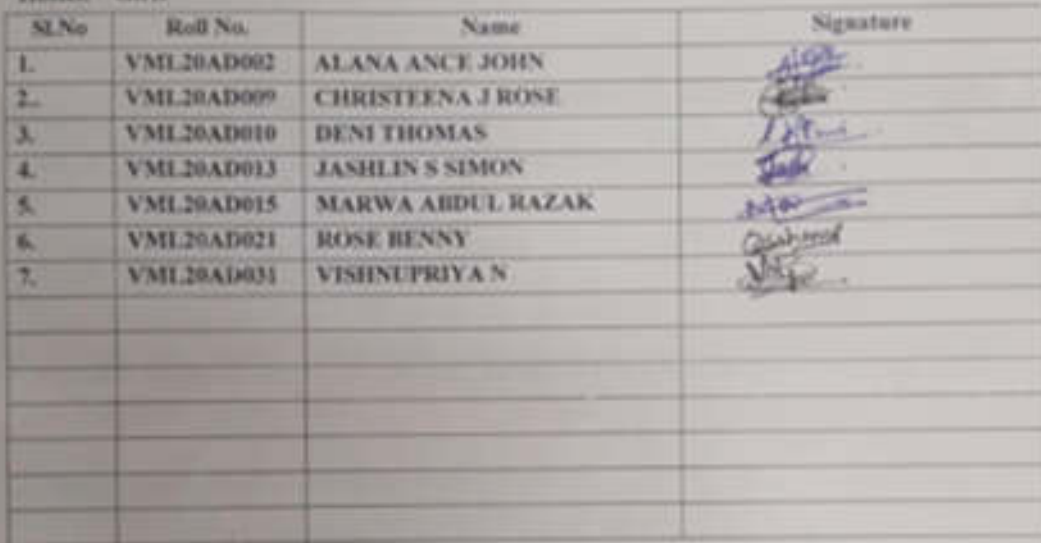 Sl.No Roll No. Name Signature
1. VML20AD002 ALANA ANCE JOHN
2.. VML20AD009 CHRISTEENA J ROSE
3. VML20AD010 DENI THOMAS
4. VML20AD013 JASHLIN S SIMON
5. VML20AD015 MARWA ABDUL RAZAK
6. VML20AD021 ROSE BENNY
7. VML20AD031 VISHNUPRIYA N